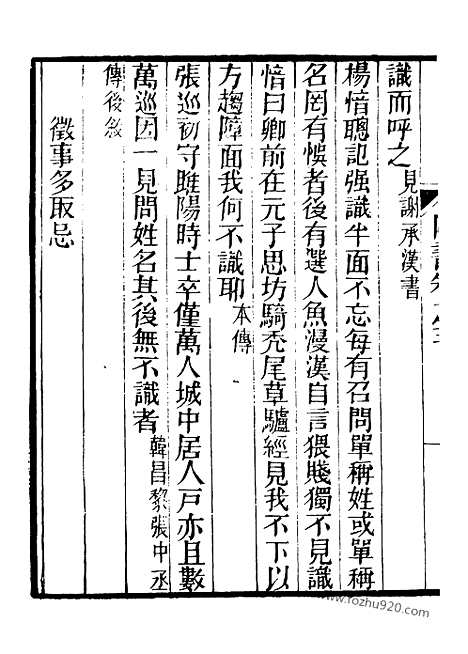 識而呼之見謝承漢書
楊愔聰記强識半面不忘每有召問單稱姓或單稱
名罔有悞者後有選人魚漫漢自言猥賤獨不見識
愔曰卿前在元子思坊騎禿尾草驢經見我不下以
方趨障面我何不識聊本傳
張巡初守睢陽時士卒僅萬人城中居人戶亦且數
萬巡因一見問姓名其後無不識者韓昌黎張中丞
傳後敘
徵事多取忌
www.fozhu920.com